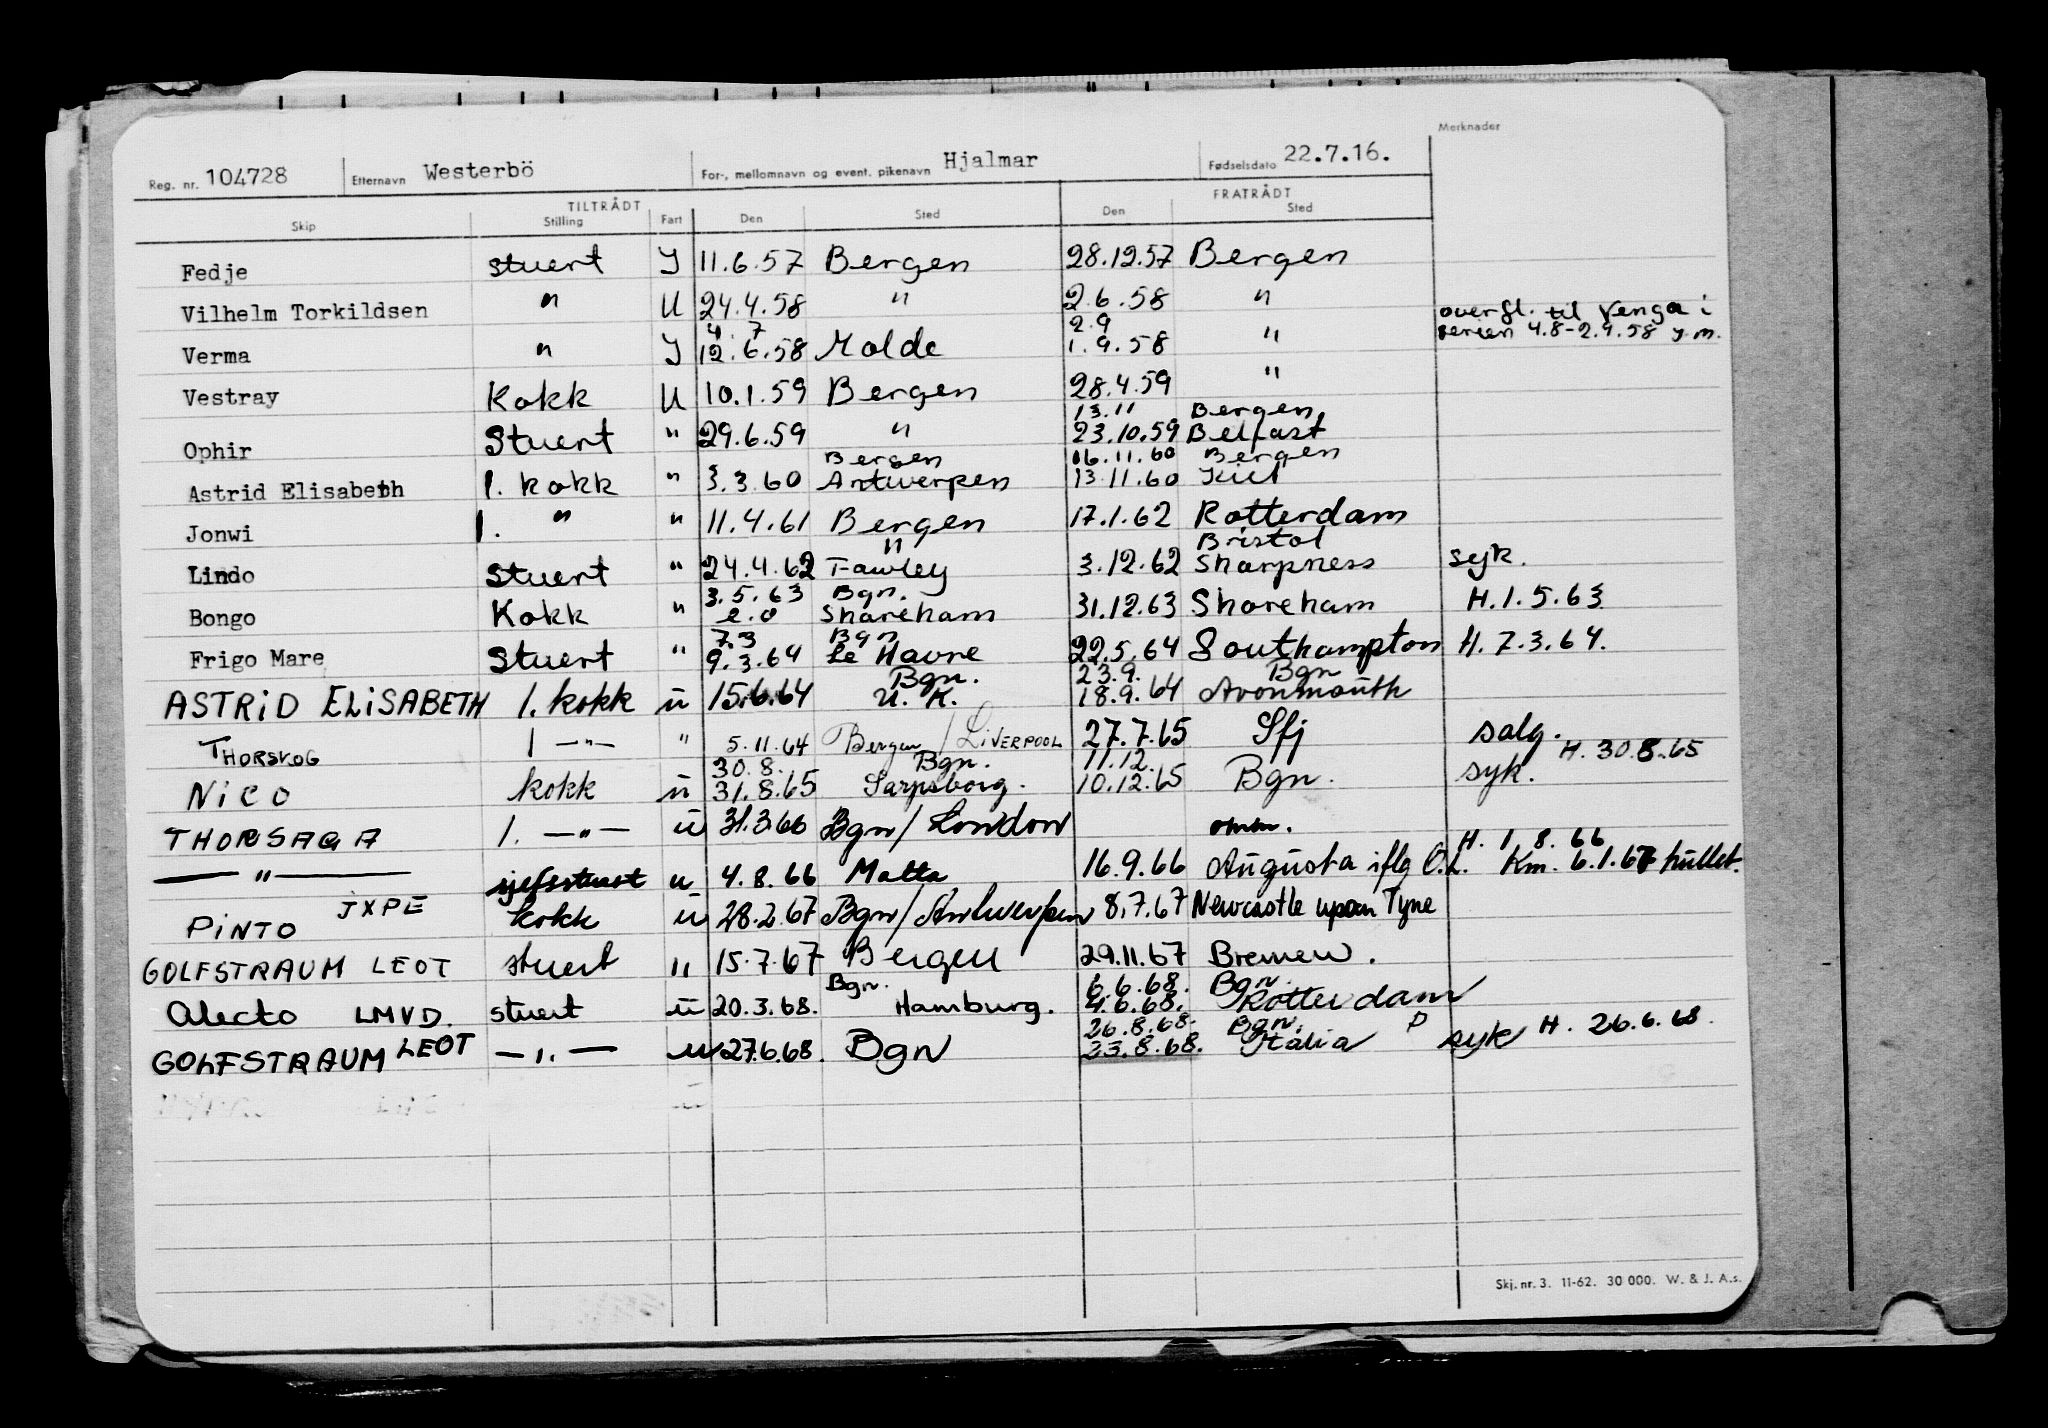 Merknader
Reg. nr. 104728 Etternavn Westerbö For-, mellomnavn og event. pikenavn Hjalmar Fødselsdato 22.7.16.
TILTRÅDT FRATRÅDT
Skip Stilling Fart Den Sted Den Sted
Fedje stuert J 11.6.57 Bergen 28.12.57 Bergen
Vilhelm Torkildsen " U 24.4.58 " 2.6.58 " overfl. til Venga i
4 7 2.9 ferien 4.8-2.9.58 y.m.
Verma " J 12.6.58 Molde 1.9.58 "
Vestray Kokk U 10.1.59 Bergen 28.4.59 "
13.11 Bergen
Ophir Stuert " 29.6.59 " 23.10.59 Belfast
Bergen 16.11.60 Bergen
Astrid Elisabeth 1. kokk " 3.3.60 Antwerpen 13.11.60 Kiel
Jonwi 1. " " 11.4.61 Bergen 17.1.62 Rotterdam
" Bristol
Lindo Stuert " 24.4.62 Fawley 3.12.62 Sharpness syk.
3.5.63 Bgn.
Bongo Kokk " e.o Shoreham 31.12.63 Shoreham H.1.5.63
7.3 Bgn
Frigo Mare Stuert " 9.3.64 Le Havre 22.5.64 Southampton H. 7.3.64.
Bgn. 23.9. Bgn
ASTRID ELISABETH 1. kokk u 15.6.64 U.K. 18.9.64 Avonmouth
THORSKOG 1 —"— " 5.11.64 Bergen / LIVERPOOL 27.7.65 Sfj salg.
30.8. Bgn. 11.12. H. 30.8.65
NICO kokk u 31.8.65 Sarpsborg. 10.12.65 Bgn. syk.
THORSAGA 1. —"— u 31.3.66 Bgn/ London omm.
H. 1.8.66
—"— sjefsstuert u 4.8.66 Malta 16.9.66 Augusta iflg O.L. Km. 6.1.67 hullet.
PINTO JXPE kokk u 28.2.67 Bgn/Antwerpen 8.7.67 Newcastle upon Tyne
GOLFSTRAUM LEOT stuert " 15.7.67 Bergen 29.11.67 Bremen.
Bgn. 6.6.68. Bgn
Alecto LMVD. stuert u 20.3.68. Hamburg. 4.6.68. Rotterdam
26.8.68. Bgn. P H. 26.6.68.
GOLFSTRAUM LEOT —"— u 27.6.68. Bgn 23.8.68. Italia syk
Skj. nr. 3. 11-62. 30 000. W. & J. A.s.